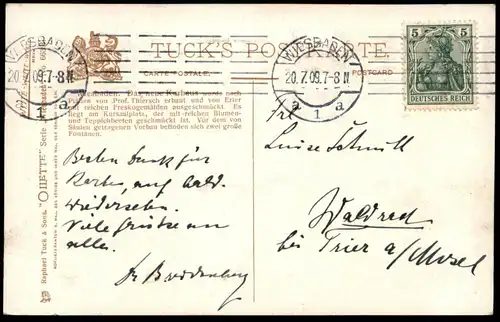 TUCK'S POSTKARTE.
CARTE POSTALE.
POSTCARD
WIESBADEN
20.7.09.7-8N
1 a
WIESBADEN
20.7.09.7-8N
a 1 a
5 5
DEUTSCHES REICH
Wiesbaden. Das neue Kurhaus wurde nach
Plänen von Prof. Thiersch erbaut und von Erler
mit reichen Freskogemälden ausgeschmückt. Es
liegt am Kursaalplatz, der mit reichen Blumen-
und Teppichbeeten geschmückt ist. Vor dem von
Säulen getragenen Vorbau befinden sich zwei große
Fontänen.
Raphael Tuck & Sons. "OILETTE" Serie
Besten Dank für
Karten, auf bald.
Wiedersehen.
Viele Grüße an
alle.
Frl
Luise Schmitt
Waldrach
bei Trier a/Mosel